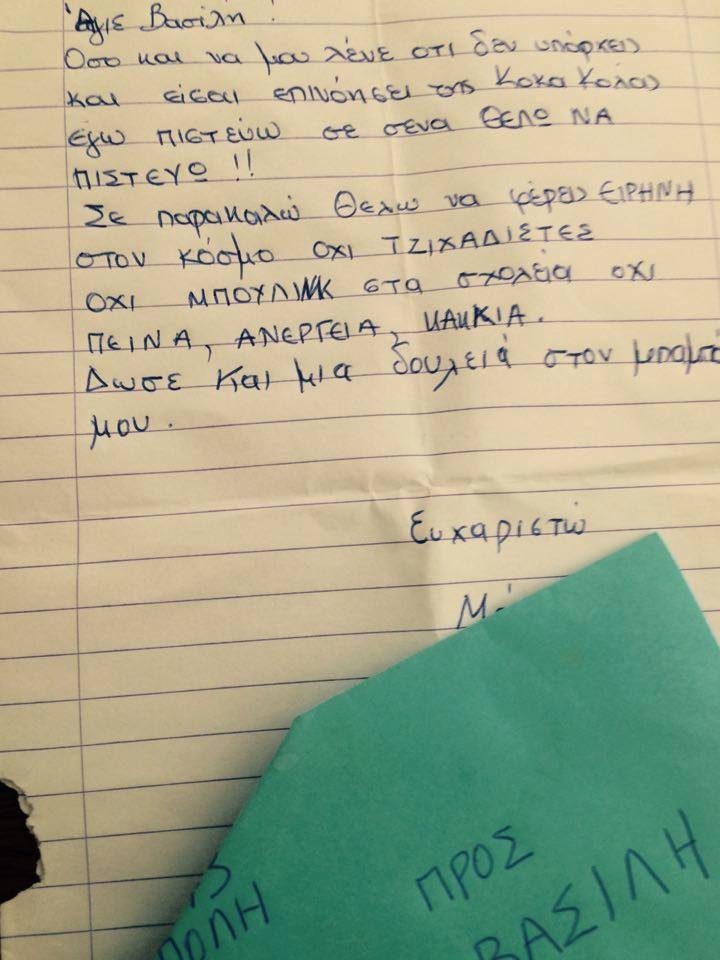 Άγιε Βασίλη!
Όσο και να μου λένε οτι δεν υπάρχεις
και είσαι επινόησει της Κοκα Κολας
εγω πιστεύω σε σενα θελω ΝΑ
ΠΙΣΤΕΥΩ!!
Σε παρακαλώ θελω να φέρεις ΕΙΡΗΝΗ
στον κόσμο οχι ΤΖΙΧΑΔΙΣΤΕΣ
ΟΧΙ ΜΠΟΥΛΙΝΚ στα σχολεία οχι
ΠΕΙΝΑ, ΑΝΕΡΓΕΙΑ, ΚΑΚΚΙΑ.
Δωσε και μια δουλειά στον μπαμπά
μου.
Ευχαριστώ
ΠΡΟΣ
ΒΑΣΙΛΗ